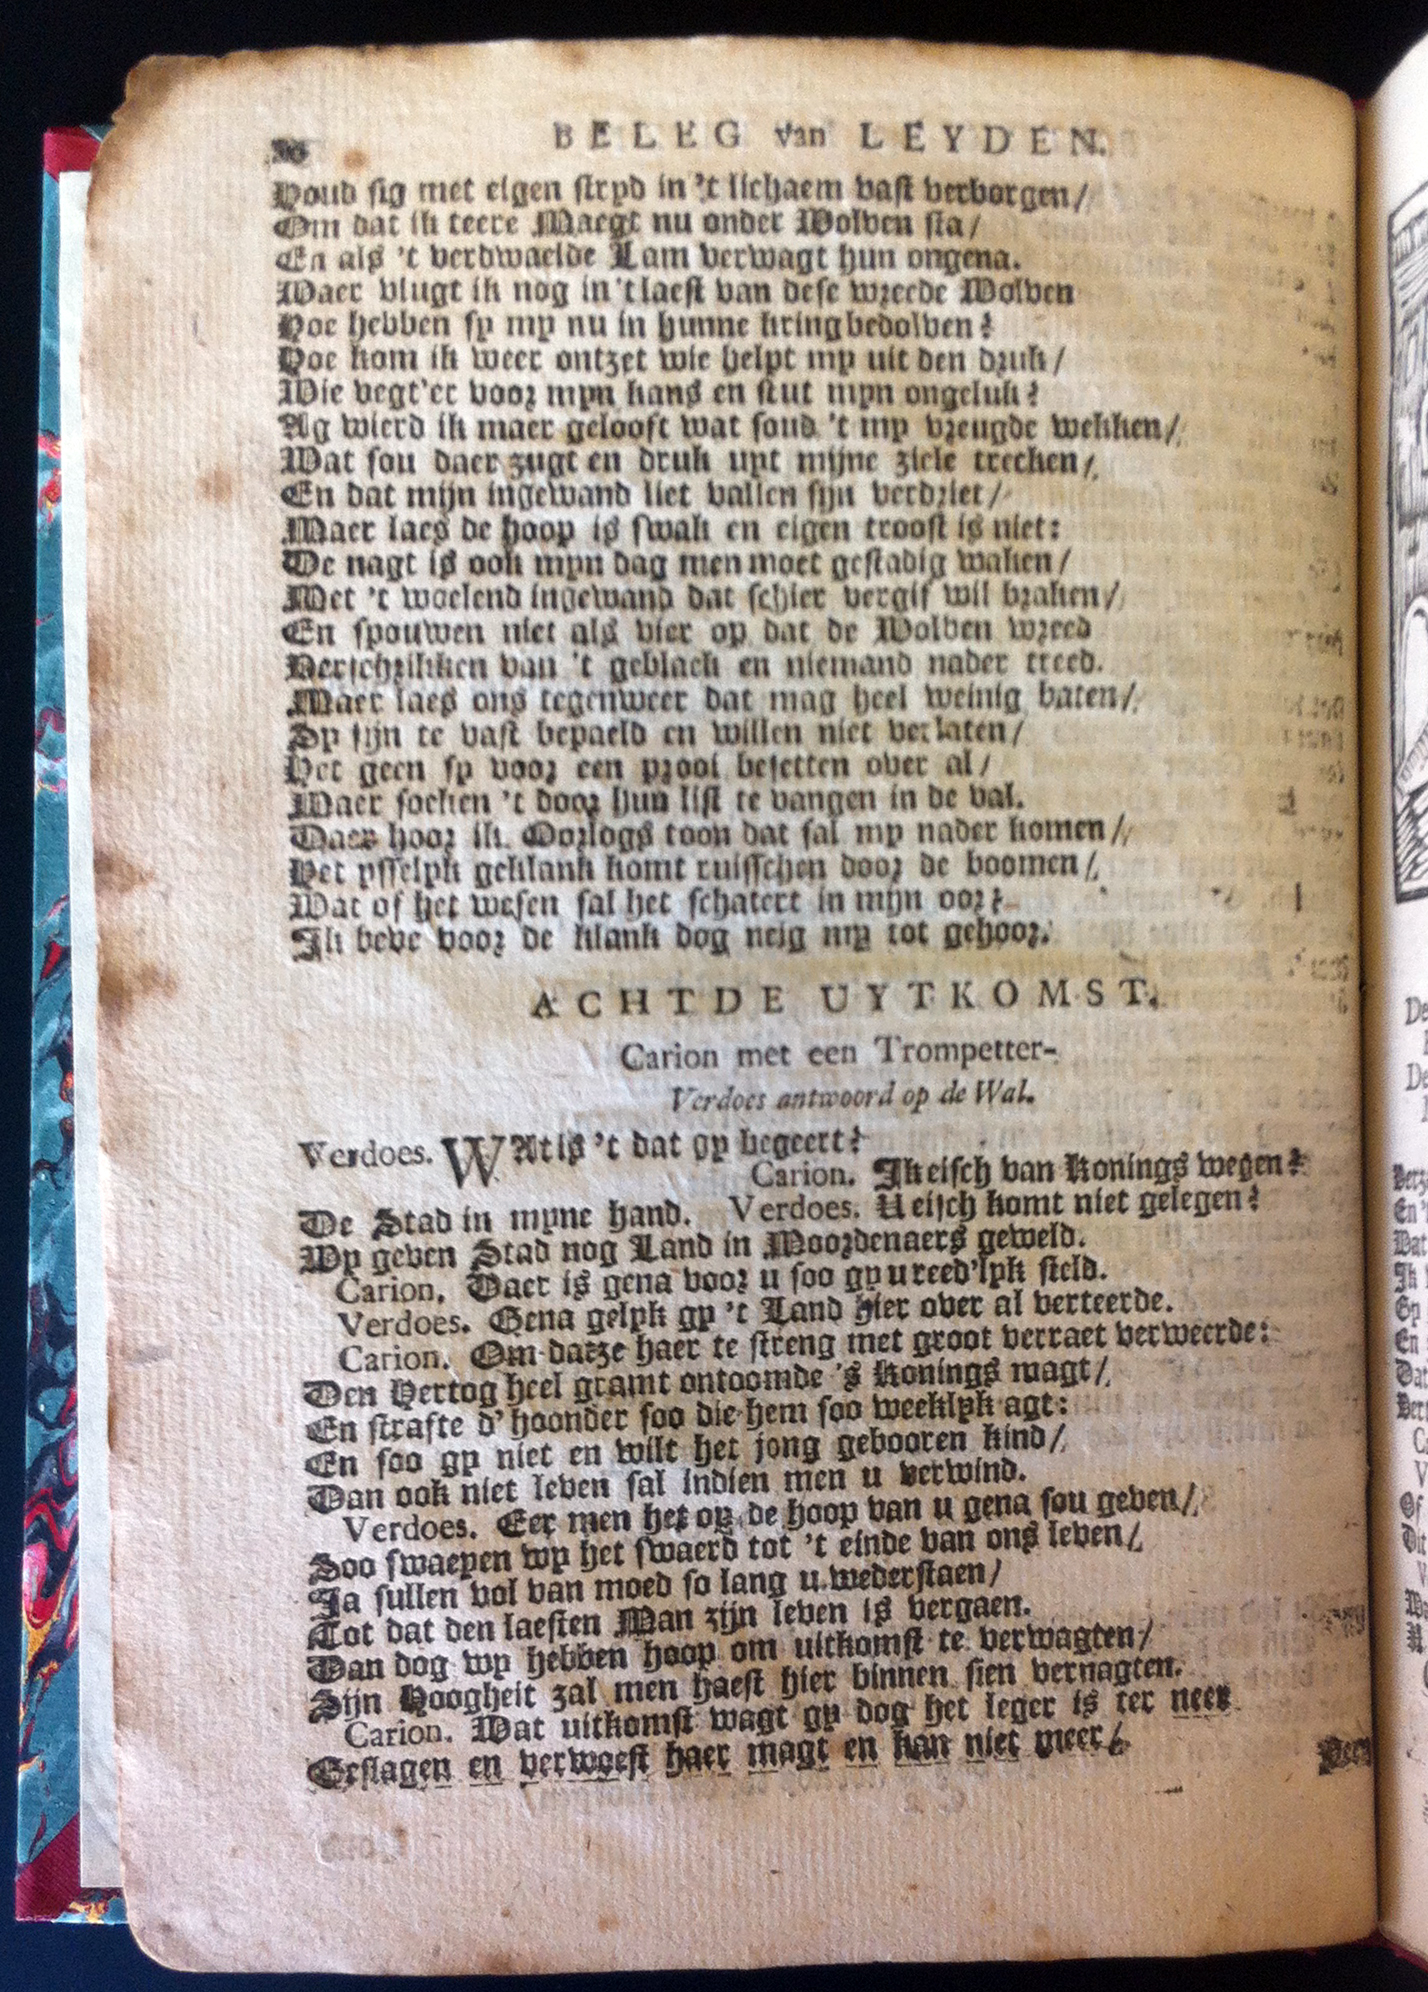 BELEG van LEYDEN.
Houd sig met eigen stryd in 't lichaem vast verborgen/
Om dat ik teere Maegt nu onder Wolven sta/
En als 't verdwaelde Lam verwagt hun ongena.
Waer vlugt ik nog in 't laest van dese wreede Wolven
Hoe hebben sy my nu in hunne kring bedolven?
Hoe kom ik weer ontzet wie helpt my uit den druk/
Wie vegt'er voor myn kans en stut myn ongeluk?
Ag wierd ik maer gelooft wat soud 't my vreugde wekken/
Wat sou daer zugt en druk uyt mijne ziele trecken/
En dat mijn ingewand liet vallen sijn verdriet/
Maer laes de hoop is swak en eigen troost is niet:
De nagt is ook myn dag men moet gestadig waken/
Met 't woelend ingewand dat schier vergif wil braken/
En spouwen niet als vier op dat de Wolven wreed
Verschrikken van 't geblaek en niemand nader treed.
Maer laes ons tegenweer dat mag heel weinig baten/
Sy sijn te vast bepaeld en willen niet verlaten/
Het geen sy voor een prooi besetten over al/
Maer soeken 't door hun list te vangen in de val.
Daer hoor ik Oorlogs toon dat sal my nader komen/
Het ysselyk geklank komt ruisschen door de boomen/
Wat of het wesen sal het schatert in mijn oor?
Ik beve voor de klank dog neig my tot gehoor.
ACHTDE UYTKOMST.
Carion met een Trompetter.
Verdoes antwoord op de Wal.
Verdoes. WAt is 't dat gy begeert?
Carion. Ik eisch van Konings wegen?
De Stad in myne hand. Verdoes. U eisch komt niet gelegen?
Wy geven Stad nog Land in Moordenaers geweld.
Carion. Daer is gena voor u soo gy u reed'lyk steld.
Verdoes. Gena gelyk gy 't Land hier over al verteerde.
Carion. Om datze haer te streng met groot verraet verweerde:
Den Hertog heel gramt ontoomde 's Konings magt/
En strafte d' hoonder soo die hem soo weeklyk agt:
En soo gy niet en wilt het jong gebooren kind/
Dan ook niet leven sal indien men u verwind.
Verdoes. Eer men het op de hoop van u gena sou geven/
Soo swaepen wy het swaerd tot 't einde van ons leven/
Ja sullen vol van moed so lang u wederstaen/
Tot dat den laesten Man zijn leven is vergaen.
Dan dog wy hebben hoop om uitkomst te verwagten/
Sijn Hoogheit zal men haest hier binnen sien vernagten.
Carion. Wat uitkomst wagt gy dog het leger is ter neer
Geslagen en verwoest haer magt en kan niet meer/